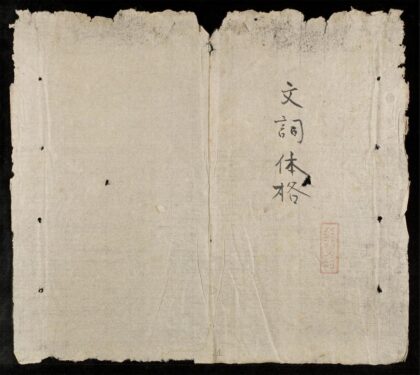 文詞体格